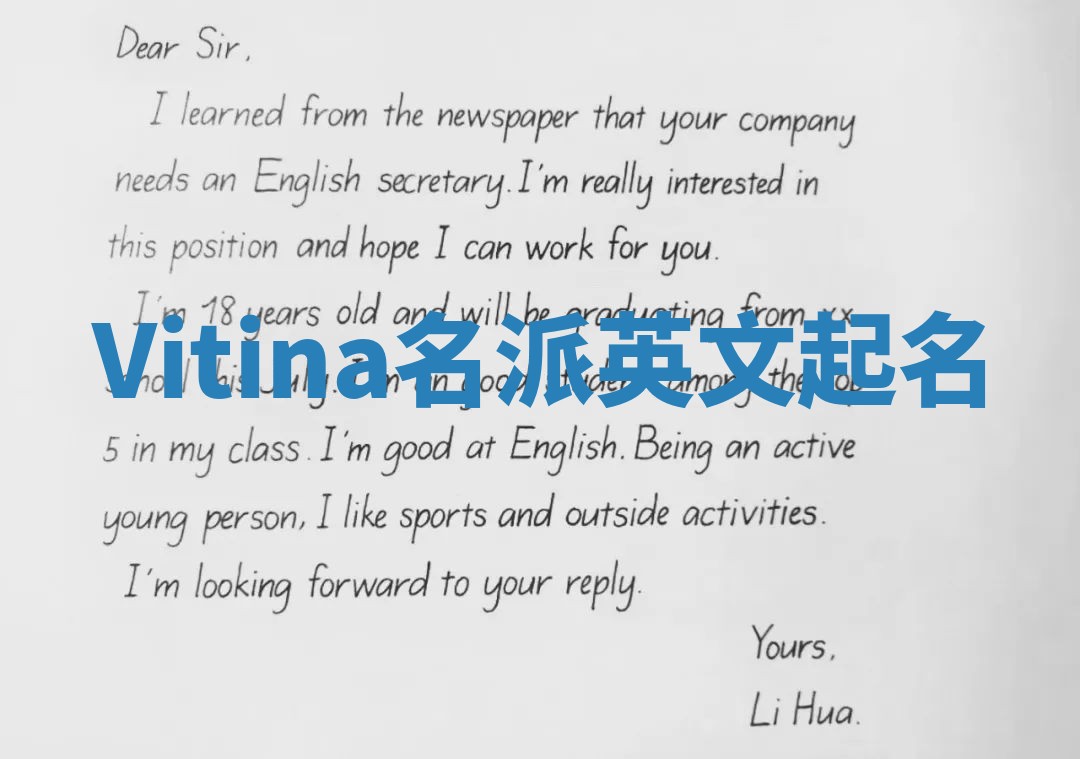 Dear Sir,
I learned from the newspaper that your company
needs an English secretary. I'm really interested in
this position and hope I can work for you.
I'm 18 years old and will be graduating from xx
Vitina名派英文起名
July. I'm an good student among the top
5 in my class. I'm good at English. Being an active
young person, I like sports and outside activities.
I'm looking forward to your reply.
Yours,
Li Hua.